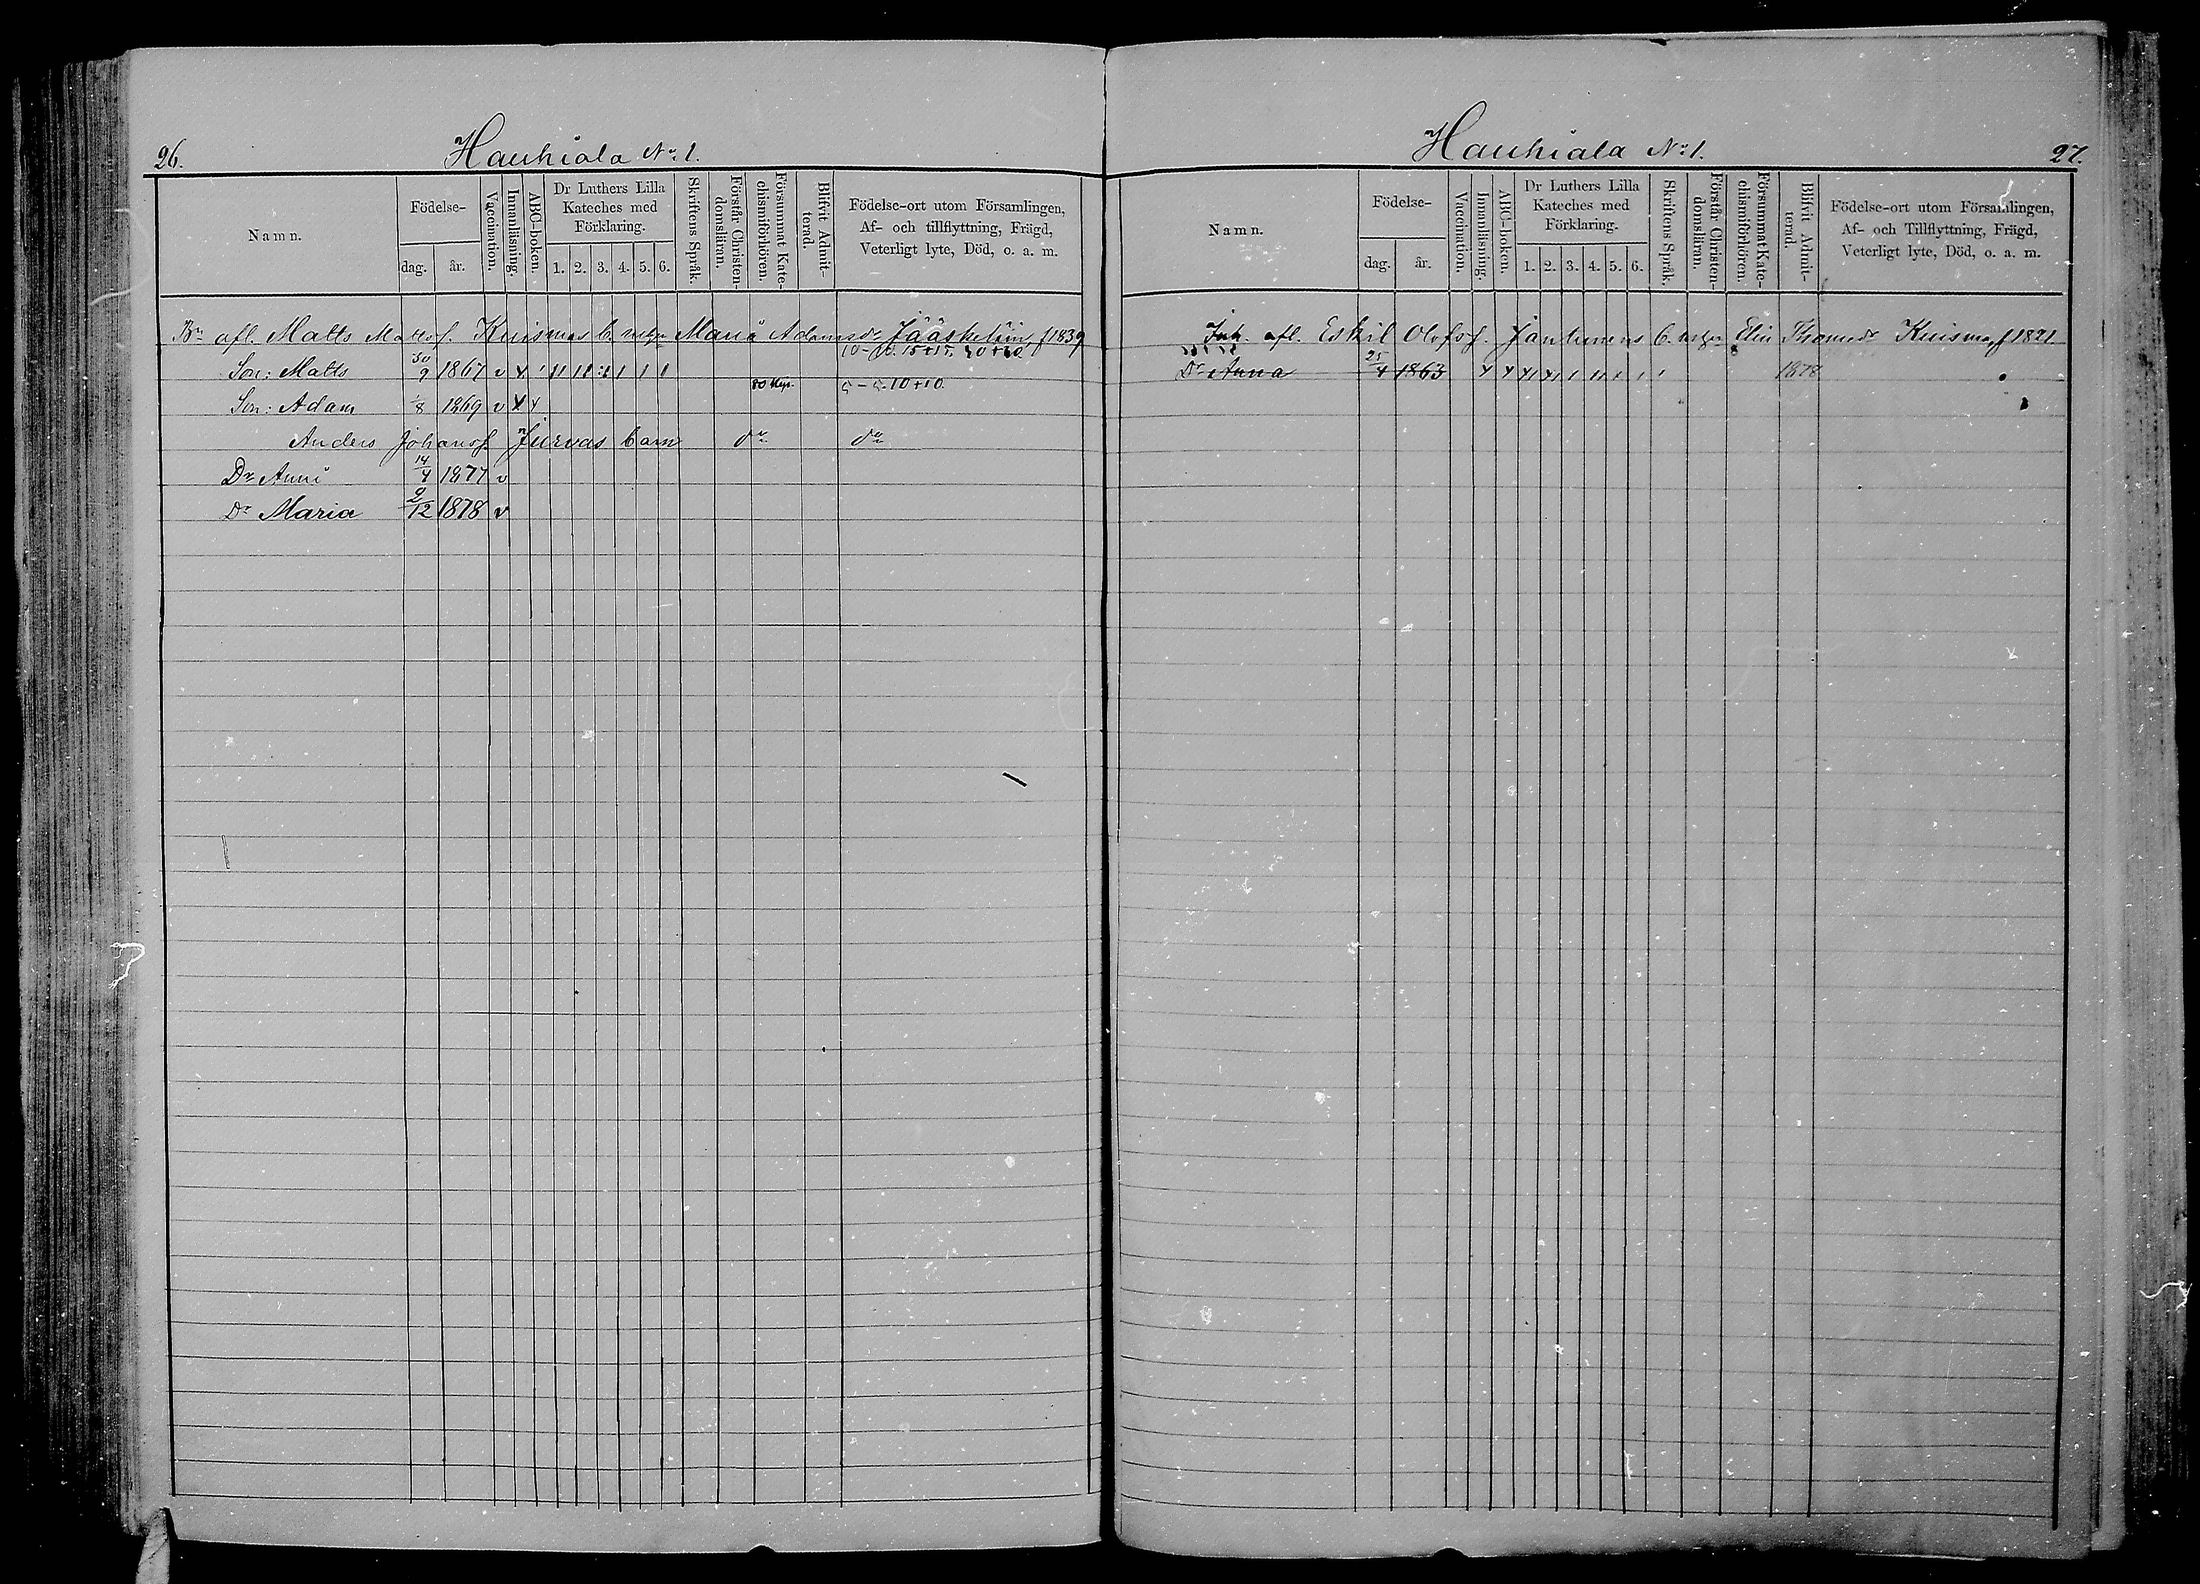 26.
Hauhiala No 1.
Namn.
Födelse-
dag.
år.
Vaccination.
Innanläsning.
ABC-boken.
Dr Luthers Lilla
Kateches med
Förklaring.
1. 2. 3. 4. 5. 6.
Skriftens Språk.
Förstår Christen-
domslärnn.
Försummat Kate-
chismiförhören.
Blifvit Admit-
terad.
Födelse-ort utom Församlingen,
Af- och tillflyttning, Frägd,
Veterligt lyte, Död, o. a. m.
Bn afl. Matts Matts f. Kuismas b. m Maria Adamsdr Jääskeläin f 1839
10 - 10. 15+15. 20+20.
Son: Matts 30/9 1867 v
80 5 - 5. 10+10
Son: Adam 1/8 1869 v
Anders Johansf. Jurvas barn do do
Dr Anni 14/4 1877 v
Dr Maria 9/12 1878 v
Hauhiala No 1.
27.
Namn.
Födelse-
dag.
år.
Vaccination.
Innanläsning.
ABC-boken.
Dr Luthers Lilla
Kateches med
Förklaring.
1. 2. 3. 4. 5. 6.
Skriftens Språk.
Förstår Christen-
domsläran.
Försummat Kate-
chismiförhören.
Blifvit Admit-
terad.
Födelse-ort utom Församlingen,
Af- och Tillflyttning, Frägd,
Veterligt lyte, Död, o. a. m.
Inh. afl. Eskil Olofsf. Jantunens b. Elin Thomasdr Kuisma f 1821
Dr Anna 25/4 1863 1878